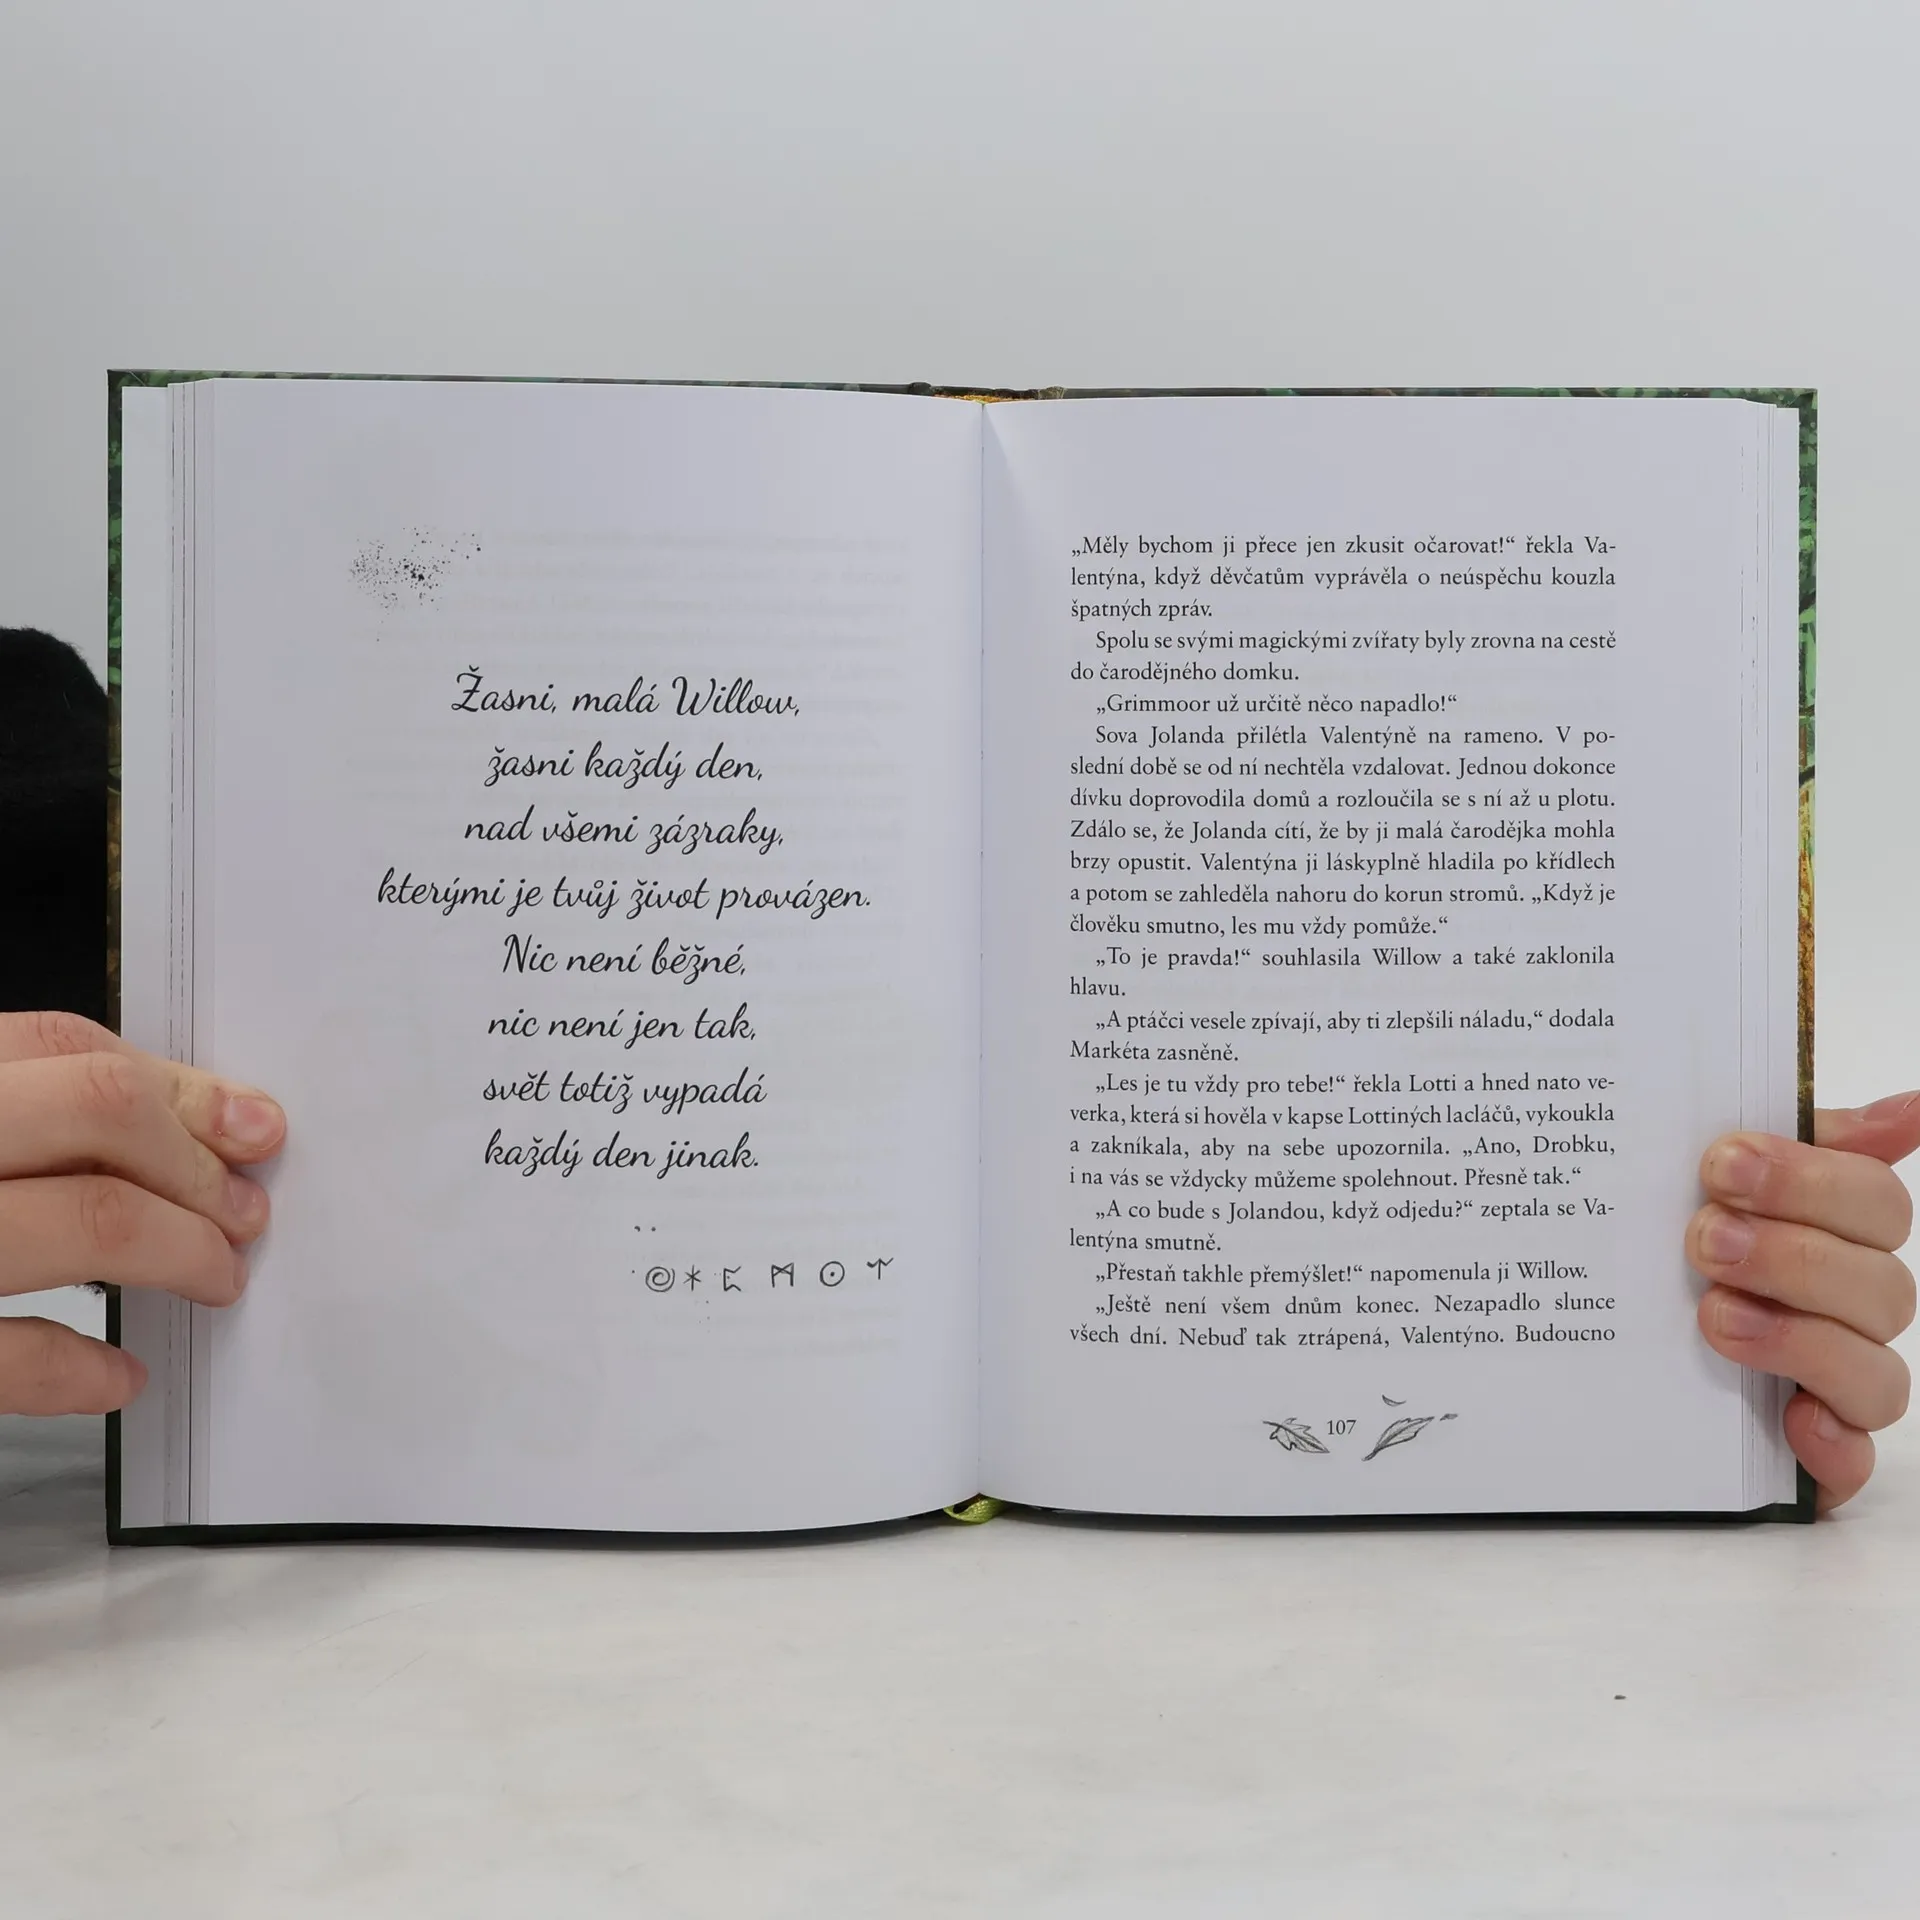 Žasni, malá Willow,
žasni každý den,
nad všemi zázraky,
kterými je tvůj život provázen.
Nic není běžné,
nic není jen tak,
svět totiž vypadá
každý den jinak.
„Měly bychom ji přece jen zkusit očarovat!“ řekla Va-
lentýna, když děvčatům vyprávěla o neúspěchu kouzla
špatných zpráv.
Spolu se svými magickými zvířaty byly zrovna na cestě
do čarodějného domku.
„Grimmoor už určitě něco napadlo!“
Sova Jolanda přilétla Valentýně na rameno. V po-
slední době se od ní nechtěla vzdalovat. Jednou dokonce
dívku doprovodila domů a rozloučila se s ní až u plotu.
Zdálo se, že Jolanda cítí, že by ji malá čarodějka mohla
brzy opustit. Valentýna ji láskyplně hladila po křídlech
a potom se zahleděla nahoru do korun stromů. „Když je
člověku smutno, les mu vždy pomůže.“
„To je pravda!“ souhlasila Willow a také zaklonila
hlavu.
„A ptáčci vesele zpívají, aby ti zlepšili náladu,“ dodala
Markéta zasněně.
„Les je tu vždy pro tebe!“ řekla Lotti a hned nato ve-
verka, která si hověla v kapse Lottiných lacláčů, vykoukla
a zakníkala, aby na sebe upozornila. „Ano, Drobku,
i na vás se vždycky můžeme spolehnout. Přesně tak.“
„A co bude s Jolandou, když odjedu?“ zeptala se Va-
lentýna smutně.
„Přestaň takhle přemýšlet!“ napomenula ji Willow.
„Ještě není všem dnům konec. Nezapadlo slunce
všech dní. Nebuď tak ztrápená, Valentýno. Budoucno
107